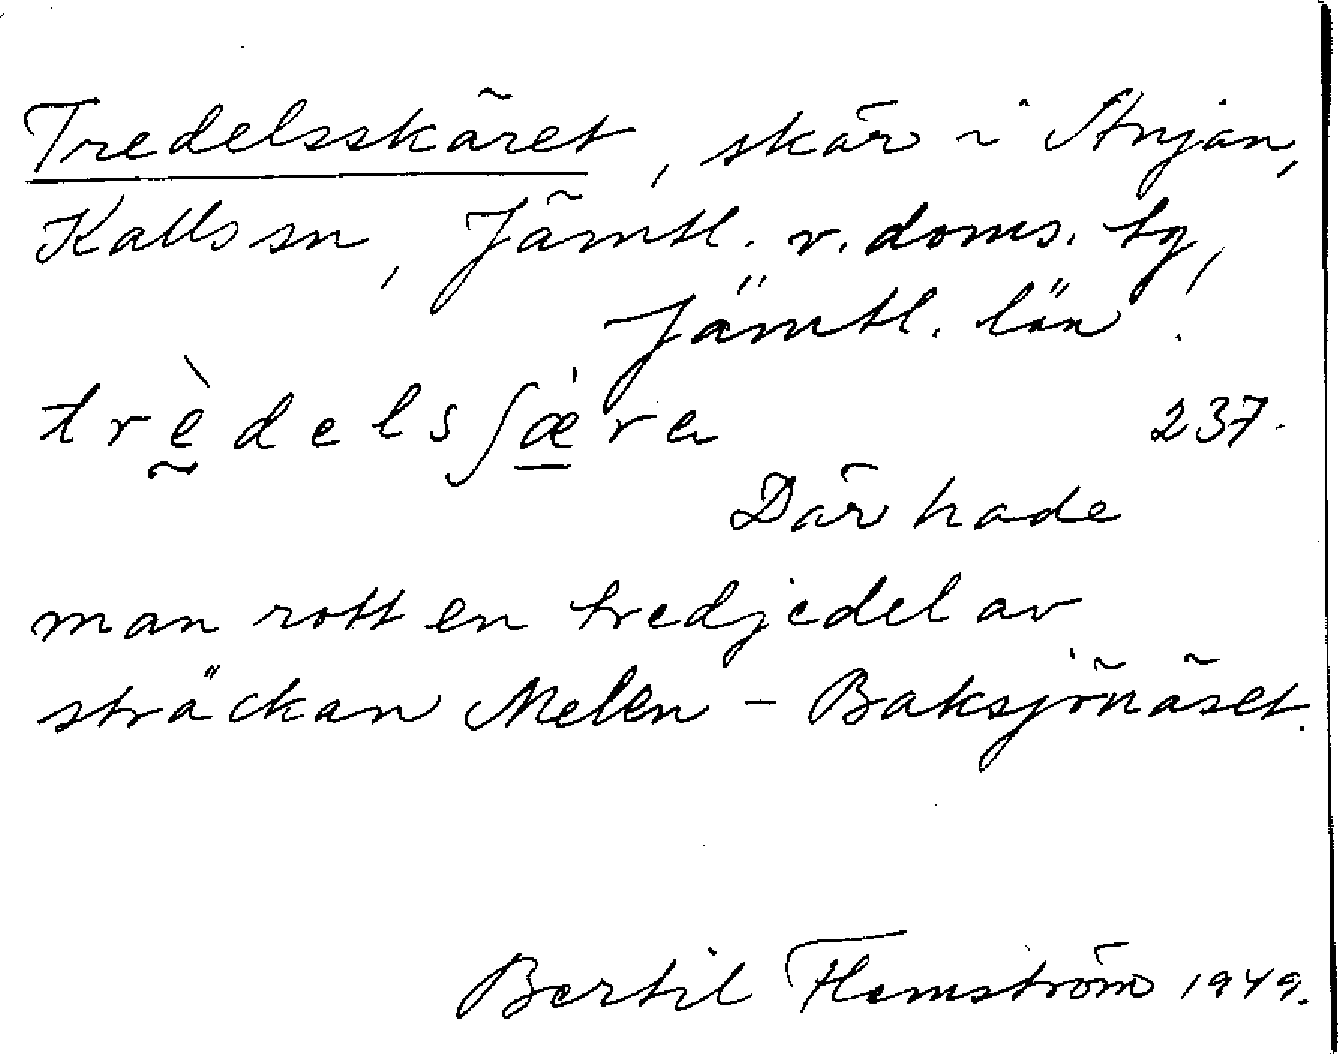 Tredelsskäret, skär i Anjan,
Kalls sn, Jämtl. v. doms. tg,
Jämtl. län.
trèdelsʃæ̀ra 237.
Där hade
man rott en tredjedel av
sträckan Melen – Baksjönäset.
Bertil Flemström 1949.